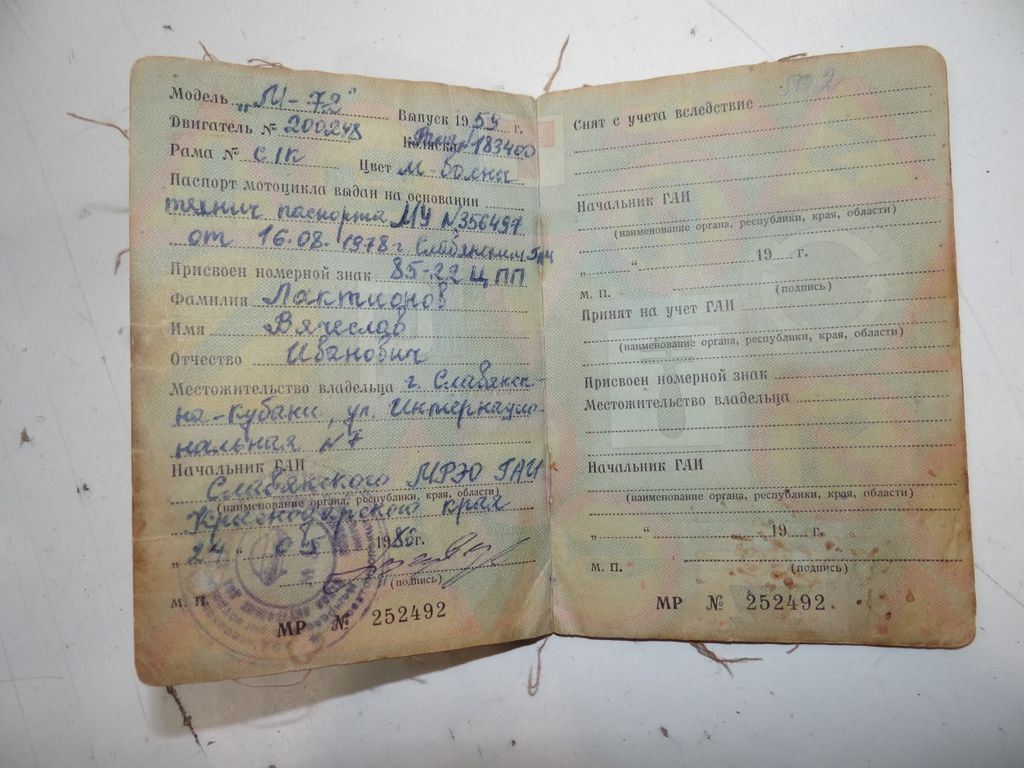 Модель „М-72" Выпуск 1959 г.
Двигатель № 200248 183400
Рама № С1К Цвет м-волны
Паспорт мотоцикла выдан на основании
технич паспорта МУ №356497
от 16.08.1978 г Славянским ГАИ
Присвоен номерной знак 85-22 Ц ПП
Фамилия Лактионов
Имя Вячеслав
Отчество Иванович
Местожительство владельца г. Славянск-
на-Кубани, ул. Интернацио-
нальная №7
Начальник ГАИ
Славянского МРЭО ГАИ
(наименование органа, республики, края, области)
Краснодарского края
„24" 05 1986г.
(подпись)
М. П.
МР № 252492
Снят с учета вследствие
Начальник ГАИ
(наименование органа, республики, края, области)
„ “ 19 г.
М. П. (подпись)
Принят на учет ГАИ
(наименование органа, республики, края, области)
Присвоен номерной знак
Местожительство владельца
Начальник ГАИ
(наименование органа, республики, края, области)
„ “ 19 г.
М. П. (подпись)
МР № 252492